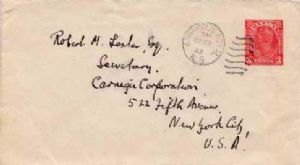 Robert M. Lester, Esq.
Secretary,
Carnegie Corporation,
522 Fifth Avenue,
New York City,
U.S.A.
CANADA
3 CENTS 3
N.S.